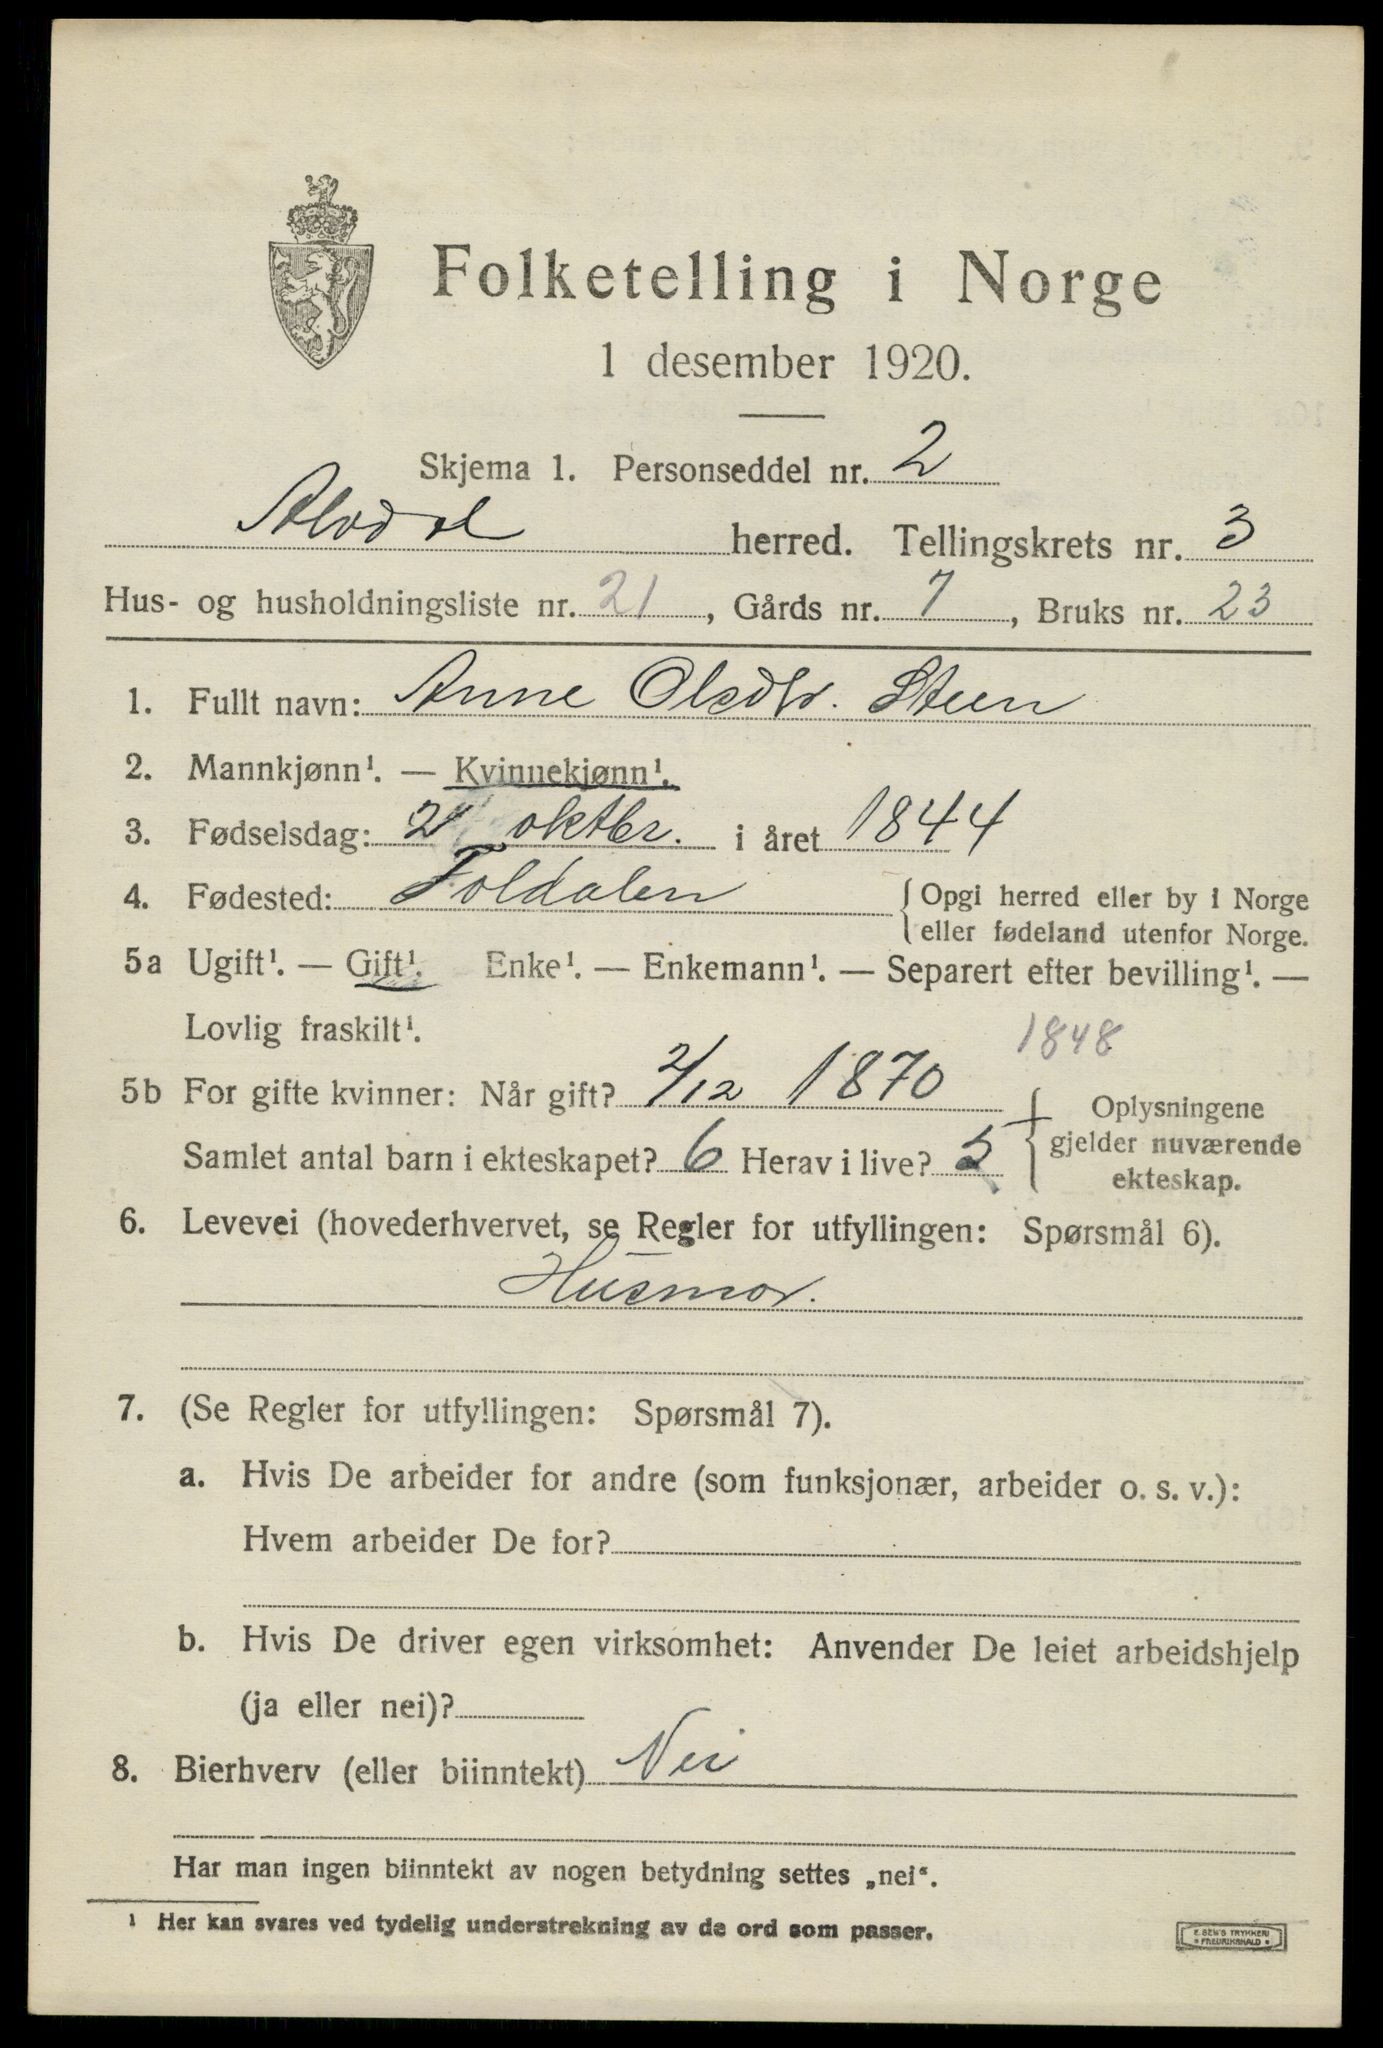 Folketelling i Norge
1 desember 1920.
Skjema 1. Personseddel nr. 2
Alvdal herred. Tellingskrets nr. 3
Hus- og husholdningsliste nr. 21, Gårds nr. 7, Bruks nr. 23
1. Fullt navn: Anne Olsdtr. Steen
2. Mannkjønn¹. — Kvinnekjønn¹.
3. Fødselsdag: oktbr. i året 1844
4. Fødested: Foldalen { Opgi herred eller by i Norge
eller fødeland utenfor Norge.
5a Ugift¹. — Gift¹. Enke¹. — Enkemann¹. — Separert efter bevilling¹. —
Lovlig fraskilt¹.
1848
5b For gifte kvinner: Når gift? 2/12 1870 { Oplysningene
gjelder nuværende
Samlet antal barn i ekteskapet? 6 Herav i live? 5
ekteskap.
6. Levevei (hovederhvervet, se Regler for utfyllingen: Spørsmål 6).
Husmor.
7. (Se Regler for utfyllingen: Spørsmål 7).
a. Hvis De arbeider for andre (som funksjonær, arbeider o. s. v.):
Hvem arbeider De for?
b. Hvis De driver egen virksomhet: Anvender De leiet arbeidshjelp
(ja eller nei)?
8. Bierhverv (eller biinntekt) Nei
Har man ingen biinntekt av nogen betydning settes „nei“.
¹ Her kan svares ved tydelig understrekning av de ord som passer.
E. SEM'S TRYKKERI
FREDRIKSHALD